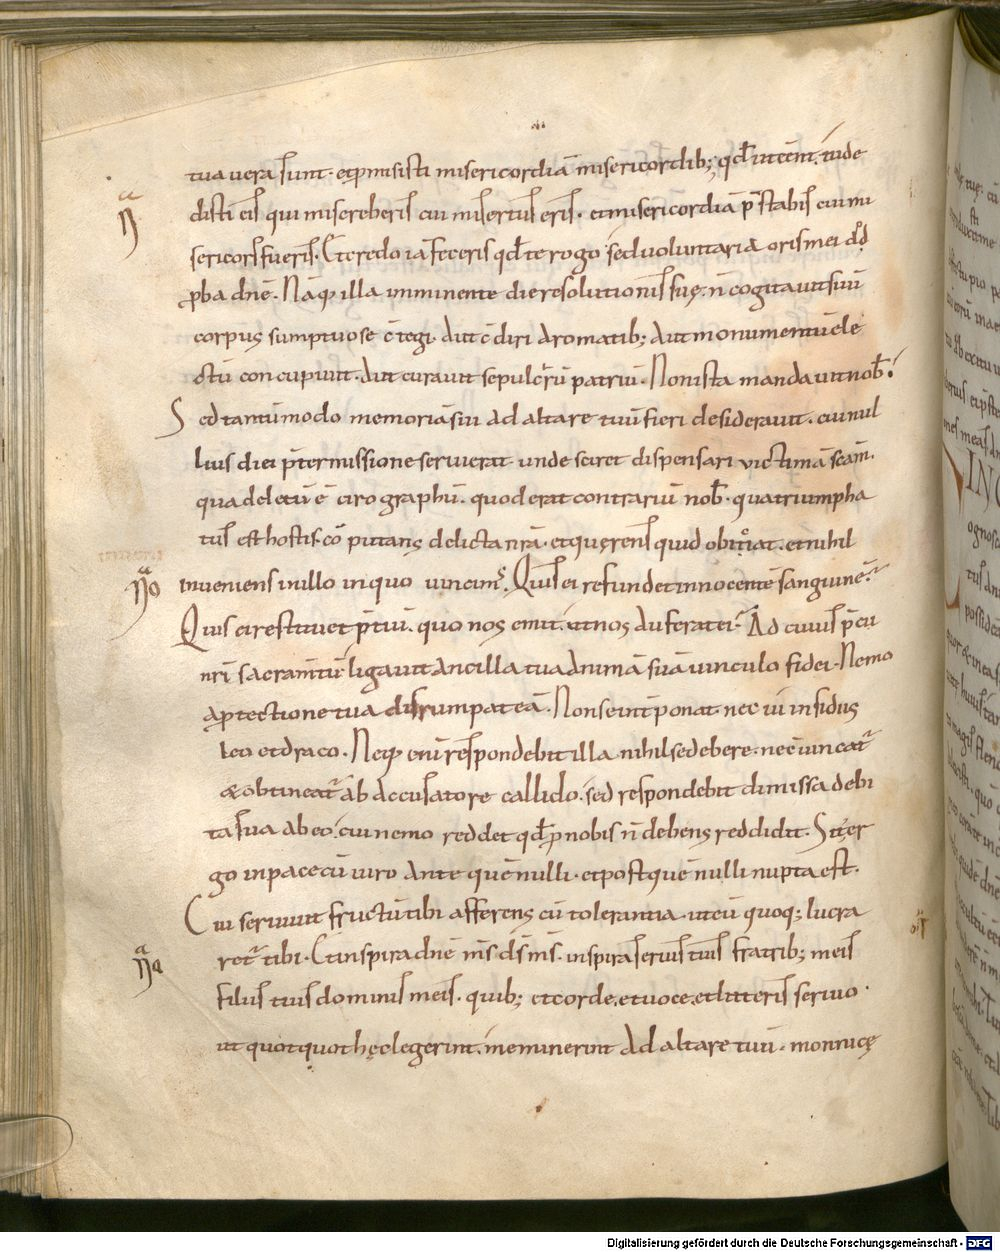 tua uera sunt. et promisisti misericordiā misericordib; qd̄ ut eēnt. tu de
disti eis qui misereberis cui misertus eris. et misericordiā p̄stabis cui mi
sericors fueris. Et credo iā feceris qd̄ te rogo. sed uoluntaria oris mei
proba dn̄e. Nāq; illa imminente die resolutionis suę. n̄ cogitauit suū
corpus sumptuose c̄tegi. aut c̄diri aromatib; aut monumentū ele
ctū concupiuit. aut curauit sepulcrū patriū. Non ista mandauit nob̄.
Sed tantūmodo memoriā sui ad altare tuū fieri desiderauit. cui nul
lius diei p̄termissione seruierat. unde sciret dispensari uictimā scām.
qua deletū ē cirographū. quod erat contrariū nob̄. qua triumpha
tus est hostis. cōputans delicta nr̄a. et quęrens quid obiciat. et nihil
inueniens in illo in quo uincim᷒. Quis ei refundet innocentē sanguinē.
Quis ei restituet p̄tiū. quo nos emit. ut nos auferat ei. Ad cuius p̄cii
nr̄i sacram̄tū ligauit ancilla tua animā suā uinculo fidei. Nemo
a protectione tua disrumpat eā. Non se int̄ponat nec ui insidiis
leo et draco. Neq; enī respondebit illa nihil se debere. ne c̄uincat᷑
& obtineat᷑ ab accusatore callido. sed respondebit dimissa debi
ta sua ab eo. cui nemo reddet qd̄ pro nobis n̄ debens reddidit. Sit er
go in pace cū uiro ante quē nulli. et post quē nulli nupta est.
Cui seruiuit fructū tibi afferens cū tolerantia. ut eū quoq; lucra
ret᷑ tibi. Et inspira dn̄e m̄s d̄s m̄s. inspira seruis tuis fratrib; meis
filiis tuis dominis meis. quib; et corde. et uoce. et litteris seruio.
ut quotquot hęc legerint. meminerint ad altare tuū. monnicę